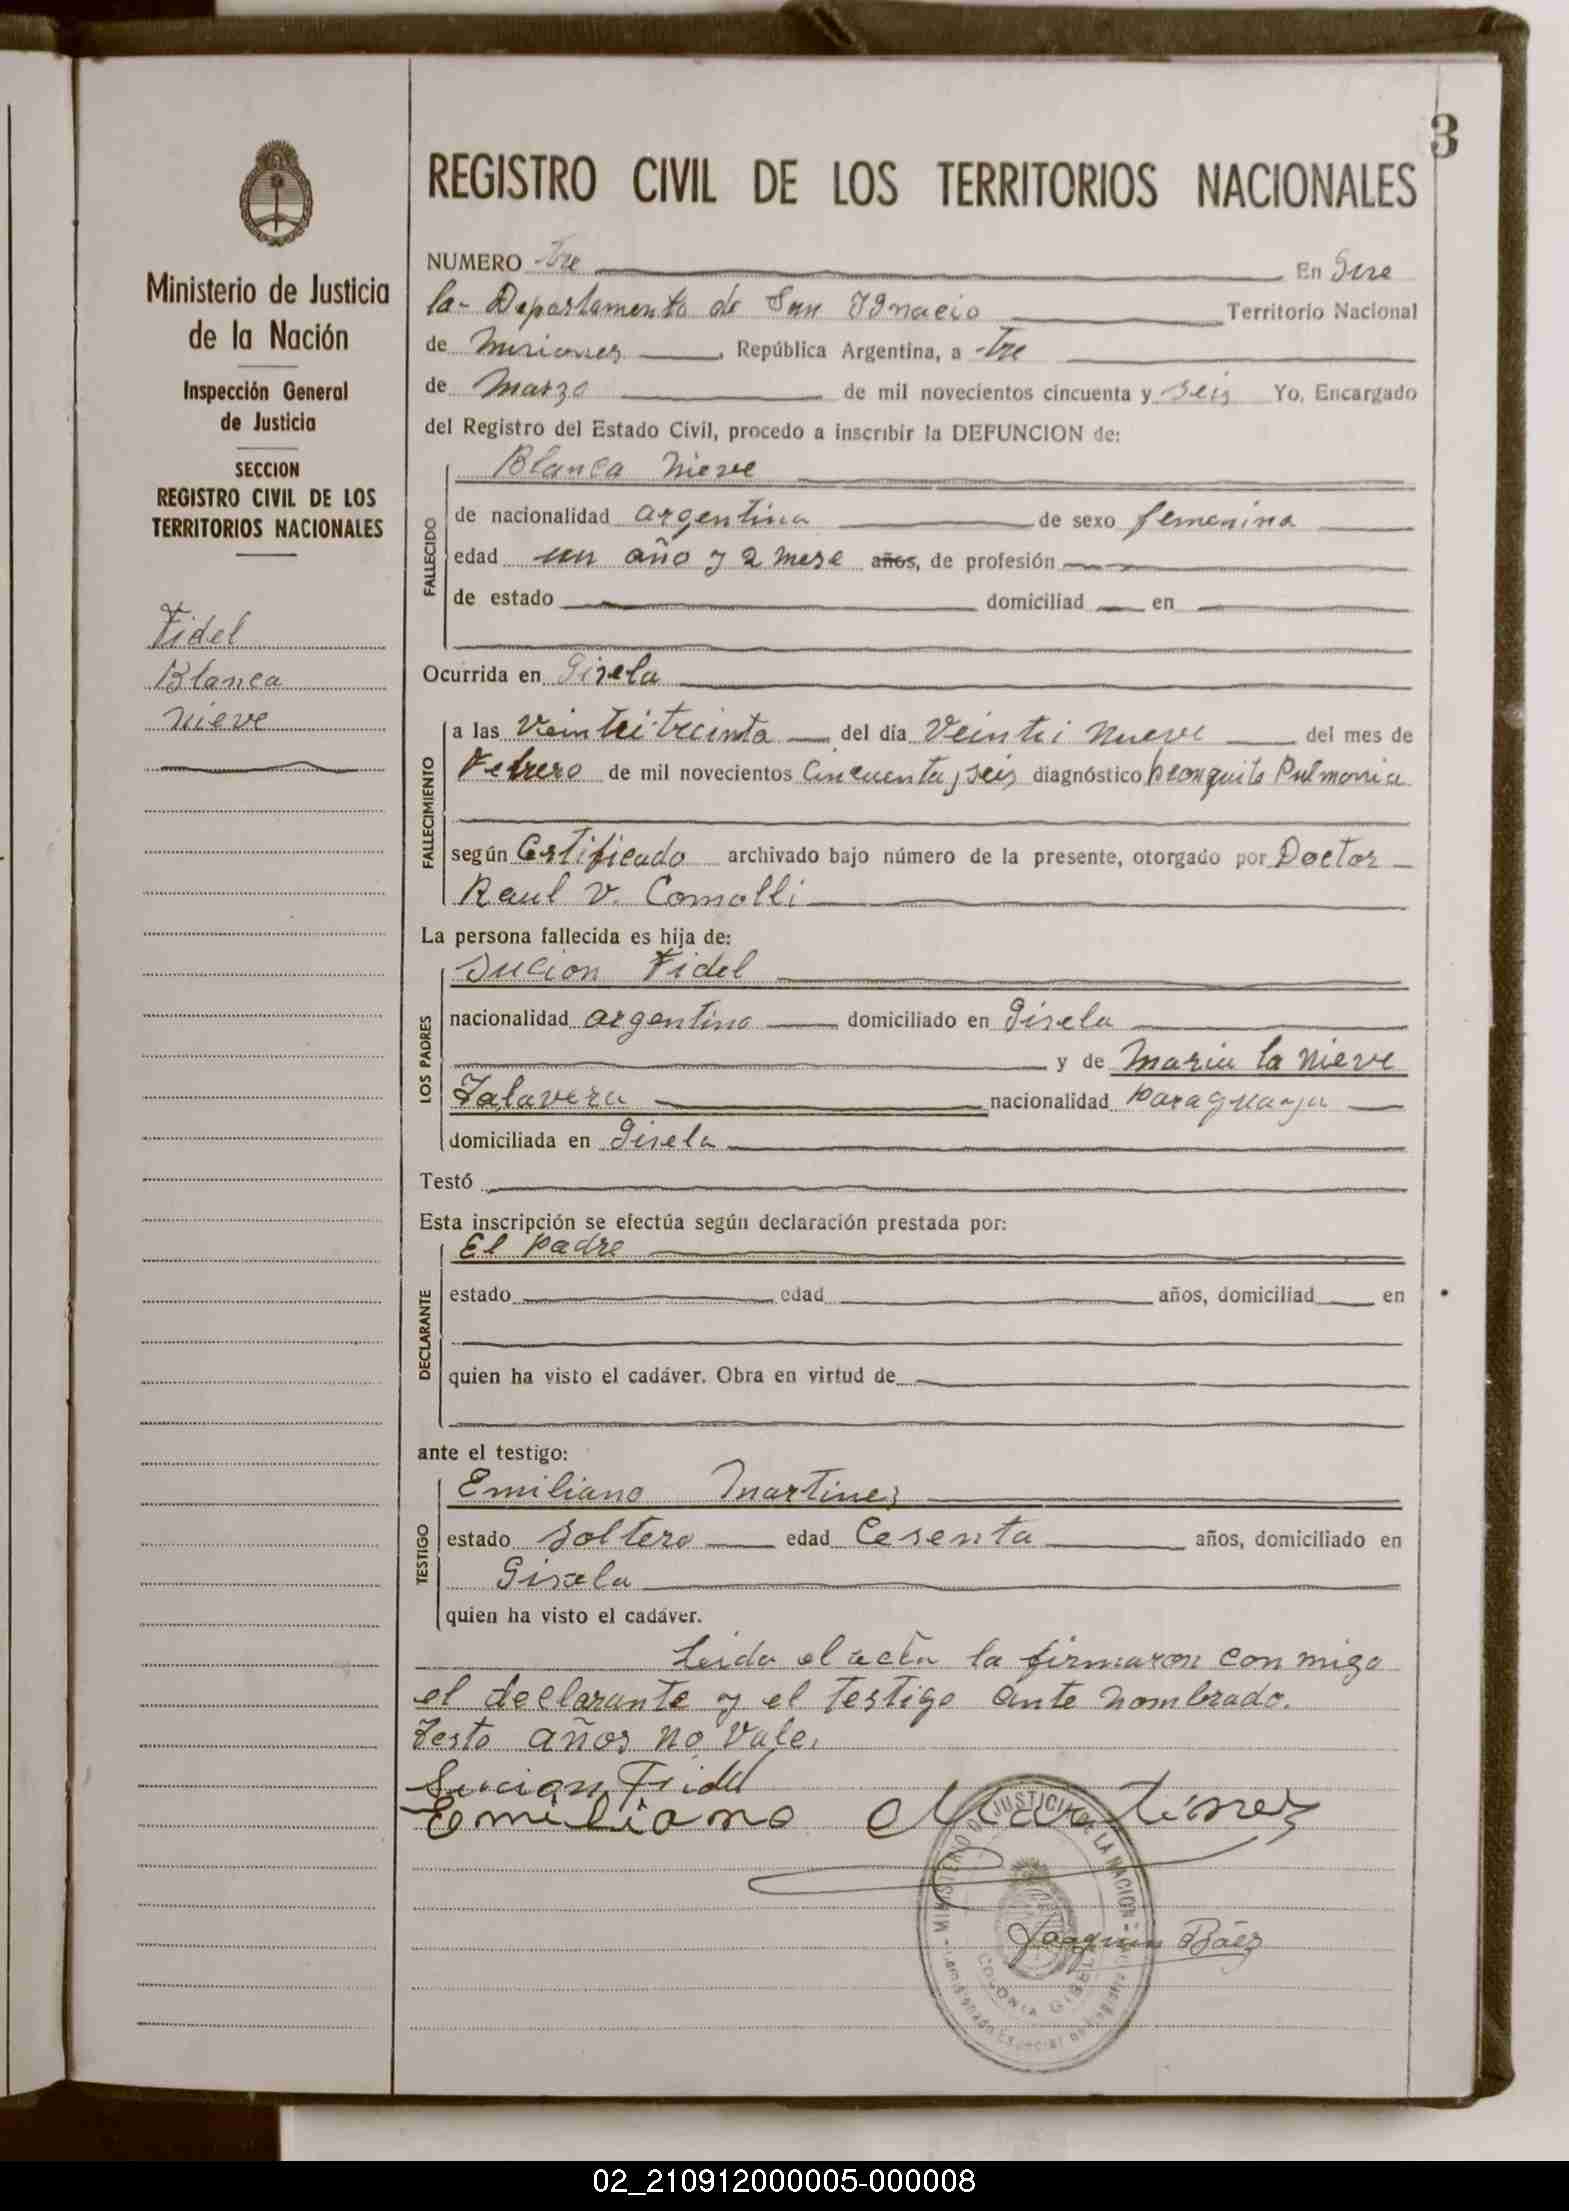 3
REGISTRO CIVIL DE LOS TERRITORIOS NACIONALES
Ministerio de Justicia
de la Nación
Inspección General
de Justicia
SECCION
REGISTRO CIVIL DE LOS
TERRITORIOS NACIONALES
Fidel
Blanca
Nieve
NUMERO Tre En Gise
la - Departamento de San Ignacio Territorio Nacional
de Misiones, República Argentina, a Tre
de Marzo de mil novecientos cincuenta y seis Yo, Encargado
del Registro del Estado Civil, procedo a inscribir la DEFUNCION de:
FALLECIDO
Blanca Nieve
de nacionalidad argentina de sexo femenina
edad un año y 2 mese años, de profesión
de estado domiciliad en
Ocurrida en Gisela
FALLECIMIENTO
a las Veintri treinta del día Veinti nueve del mes de
Febrero de mil novecientos Cincuenta y seis diagnóstico bronquito Pulmonia
según Certificado archivado bajo número de la presente, otorgado por Doctor
Raul V. Comolli
La persona fallecida es hija de:
LOS PADRES
Sucion Fidel
nacionalidad argentino domiciliado en Gisela
y de Maria la Nieve
Talavera nacionalidad Paraguaya
domiciliada en Gisela
Testó
Esta inscripción se efectúa según declaración prestada por:
DECLARANTE
El Padre
estado edad años, domiciliad en
quien ha visto el cadáver. Obra en virtud de
ante el testigo:
TESTIGO
Emiliano Martinez
estado Soltero edad Cesenta años, domiciliado en
Gisela
quien ha visto el cadáver.
Leida el acta la firmaron con migo
el declarante y el testigo ante nombrado.
Testo años no vale.
Sucion Fidel
Emiliano Martinez
MINISTERIO DE JUSTICIA DE LA NACION
Joaquin Báez
COLONIA GISELA
02_210912000005-000008